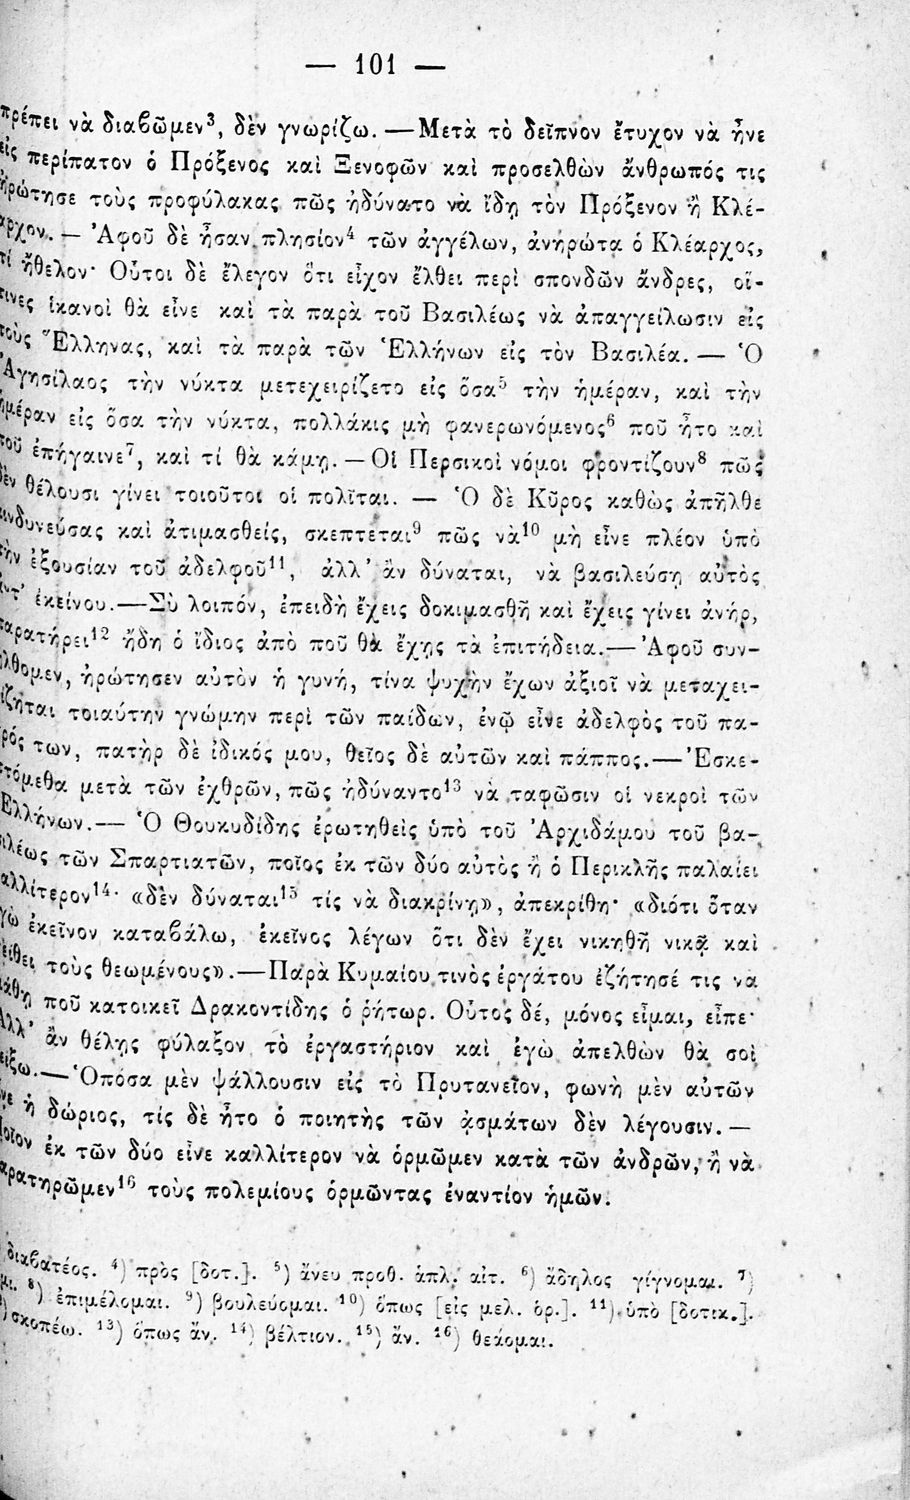 — 101 —
πρέπει νὰ διαβῶμεν³, δὲν γνωρίζω. — Μετὰ τὸ δεῖπνον ἔτυχον νὰ ἦνε
εἰς περίπατον ὁ Πρόξενος καὶ Ξενοφῶν καὶ προσελθὼν ἄνθρωπός τις
ἠρώτησε τοὺς προφύλακας πῶς ἠδύνατο νὰ ἴδῃ τὸν Πρόξενον ἢ Κλέ-
αρχον. — Ἀφοῦ δὲ ἦσαν πλησίον⁴ τῶν ἀγγέλων, ἀνηρώτα ὁ Κλέαρχος,
τί ἤθελον· Οὗτοι δὲ ἔλεγον ὅτι εἶχον ἔλθει περὶ σπονδῶν ἄνδρες, οἵ-
τινες ἱκανοὶ θὰ εἶνε καὶ τὰ παρὰ τοῦ Βασιλέως νὰ ἀπαγγείλωσιν εἰς
τοὺς Ἕλληνας, καὶ τὰ παρὰ τῶν Ἑλλήνων εἰς τὸν Βασιλέα. — Ὁ
Ἀγησίλαος τὴν νύκτα μετεχειρίζετο εἰς ὅσα⁵ τὴν ἡμέραν, καὶ τὴν
ἡμέραν εἰς ὅσα τὴν νύκτα, πολλάκις μὴ φανερωνόμενος⁶ ποῦ ἦτο καὶ
ποῦ ἐπήγαινε⁷, καὶ τί θὰ κάμῃ. — Οἱ Περσικοὶ νόμοι φροντίζουν⁸ πῶς
δὲν θέλουσι γίνει τοιοῦτοι οἱ πολῖται. — Ὁ δὲ Κῦρος καθὼς ἀπῆλθε
κινδυνεύσας καὶ ἀτιμασθείς, σκεπτεται⁹ πῶς νὰ¹⁰ μὴ εἶνε πλέον ὑπὸ
τὴν ἐξουσίαν τοῦ ἀδελφοῦ¹¹, ἀλλ’ ἂν δύναται, νὰ βασιλεύσῃ αὐτὸς
ἀντ’ ἐκείνου. — Σὺ λοιπόν, ἐπειδὴ ἔχεις δοκιμασθῆ καὶ ἔχεις γίνει ἀνήρ,
παρατήρει¹² ἤδη ὁ ἴδιος ἀπὸ ποῦ θὰ ἔχῃς τὰ ἐπιτήδεια. — Ἀφοῦ συν-
ήλθομεν, ἠρώτησεν αὐτὸν ἡ γυνή, τίνα ψυχὴν ἔχων ἀξιοῖ νὰ μεταχει-
ρίζηται τοιαύτην γνώμην περὶ τῶν παίδων, ἐνῷ εἶνε ἀδελφὸς τοῦ πα-
τρός των, πατὴρ δὲ ἰδικός μου, θεῖος δὲ αὐτῶν καὶ πάππος. — Ἐσκε-
πτόμεθα μετὰ τῶν ἐχθρῶν, πῶς ἠδύναντο¹³ νὰ ταφῶσιν οἱ νεκροὶ τῶν
Ἑλλήνων. — Ὁ Θουκυδίδης ἐρωτηθεὶς ὑπὸ τοῦ Ἀρχιδάμου τοῦ βα-
σιλέως τῶν Σπαρτιατῶν, ποῖος ἐκ τῶν δύο αὐτὸς ἢ ὁ Περικλῆς παλαίει
καλλίτερον¹⁴· «δὲν δύναται¹⁵ τίς νὰ διακρίνῃ», ἀπεκρίθη· «διότι ὅταν
ἐγὼ ἐκεῖνον καταβάλω, ἐκεῖνος λέγων ὅτι δὲν ἔχει νικηθῆ νικᾷ καὶ
πείθει τοὺς θεωμένους». — Παρὰ Κυμαίου τινὸς ἐργάτου ἐζήτησέ τις να
μάθῃ ποῦ κατοικεῖ Δρακοντίδης ὁ ῥήτωρ. Οὗτος δέ, μόνος εἶμαι, εἶπε·
Ἀλλ’ ἂν θέλῃς φύλαξον τὸ ἐργαστήριον καὶ ἐγὼ ἀπελθὼν θὰ σοὶ
δείξω. — Ὁπόσα μὲν ψάλλουσιν εἰς τὸ Πρυτανεῖον, φωνὴ μὲν αὐτῶν
εἶνε ἡ δώριος, τίς δὲ ἦτο ὁ ποιητὴς τῶν ᾀσμάτων δὲν λέγουσιν. —
Ποῖον ἐκ τῶν δύο εἶνε καλλίτερον νὰ ὁρμῶμεν κατὰ τῶν ἀνδρῶν, ἢ νὰ
παρατηρῶμεν¹⁶ τοὺς πολεμίους ὁρμῶντας ἐναντίον ἡμῶν.
διαβατέος. ⁴) πρὸς [δοτ.]. ⁵) ἄνευ προθ. ἁπλ. αἰτ. ⁶) ἄδηλος γίγνομαι. ⁷)
⁸) ἐπιμέλομαι. ⁹) βουλεύομαι. ¹⁰) ὅπως [εἰς μελ. ὁρ.]. ¹¹) ὑπὸ [δοτικ.].
σκοπέω. ¹³) ὅπως ἄν. ¹⁴) βέλτιον. ¹⁵) ἄν. ¹⁶) θεάομαι.